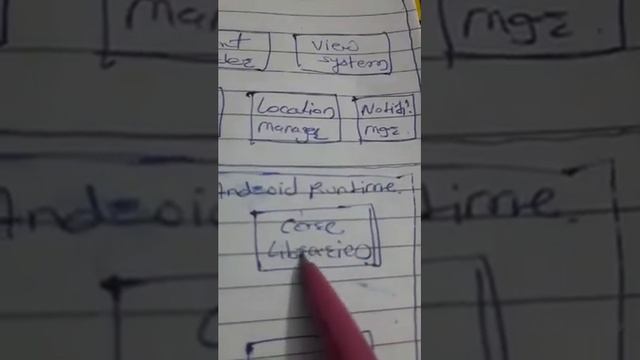 View
System
mgr.
Location
Manager
Notifi.
mgr.
Android Runtime
Core
Libraries